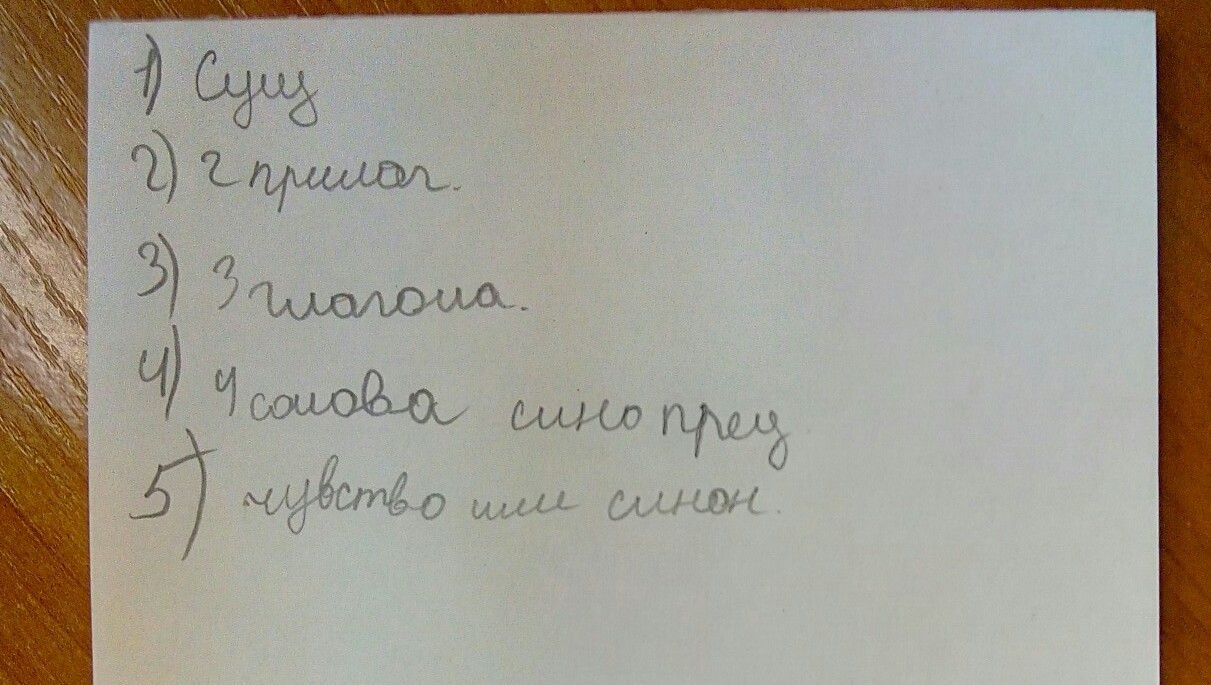 1) Сущ
2) 2 прилаг.
3) 3 глагола.
4) 4 слова сино прец
5) чувство или синон.